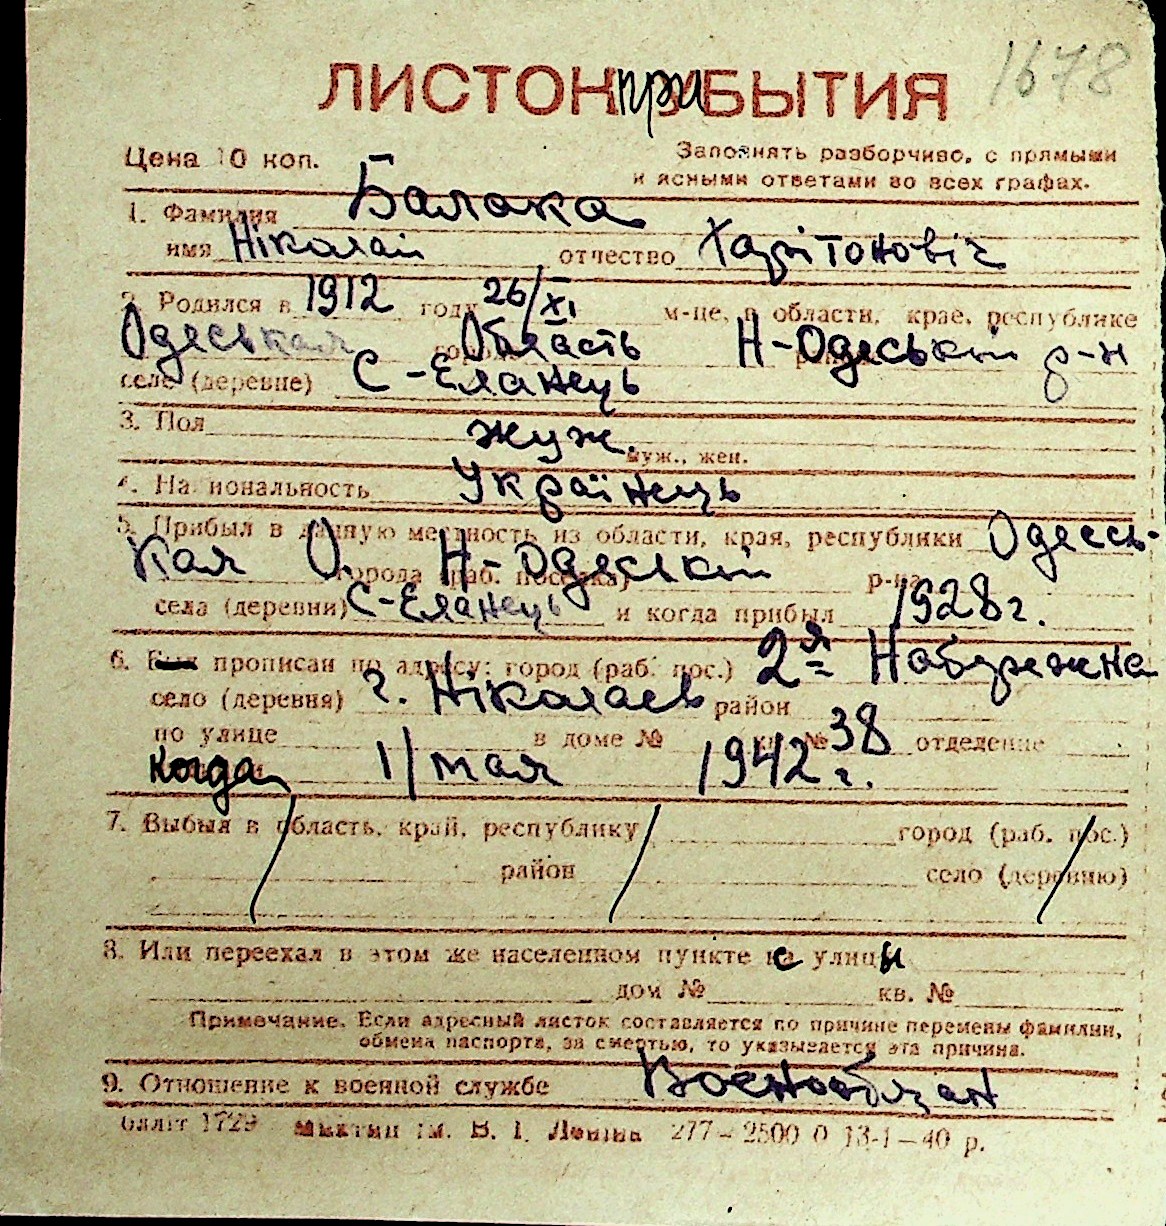 1678
ЛИСТОК ПРИБЫТИЯ
Цена 10 коп.
Заполнять разборчиво, с прямыми
и ясными ответами во всех графах.
1. Фамилия Балака
имя Ніколай отчество Харітоновіч
2. Родился в 1912 году 26/XI м-це, в области, крае, республике
Одеськая Область Н-Одеський р-н
селе (деревне) С-Еланець
3. Пол муж.
муж., жен.
4. Национальность Українець
5. Прибыл в данную местность из области, края, республики Одесь-
кая О. города (раб. поселка) Н-Одеській р-на
села (деревни) С-Еланець и когда прибыл 1928 г.
6. прописан по адресу: город (раб. пос.) 2я Набережна
село (деревня) г. Ніколаев район
по улице в доме № кв. № 38 отделение
когда 1/мая 1942 г.
7. Выбыл в область, край, республику город (раб. пос.)
район село (деревню)
8. Или переехал в этом же населенном пункте с улицы
дом № кв. №
Примечание. Если адресный листок составляется по причине перемены фамилии,
обмена паспорта, за смертью, то указывается эта причина.
9. Отношение к военной службе Военнообязан
1729 ім. В. І. Леніна 277–2500 0 13-1–40 р.